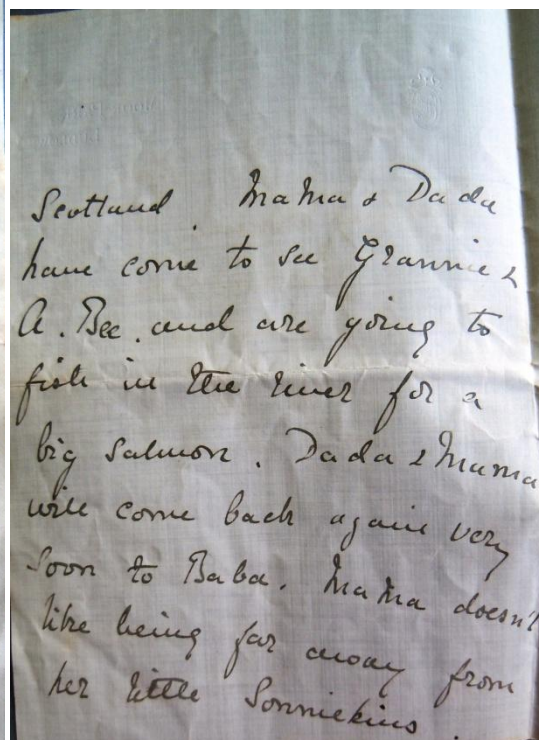 Scotland. Mama & Dada
have come to see Grannie &
A. Bee. and are going to
fish in the river for a
big salmon. Dada & Mama
will come back again very
soon to Baba. Mama doesn't
like being far away from
her little Sonniekins.